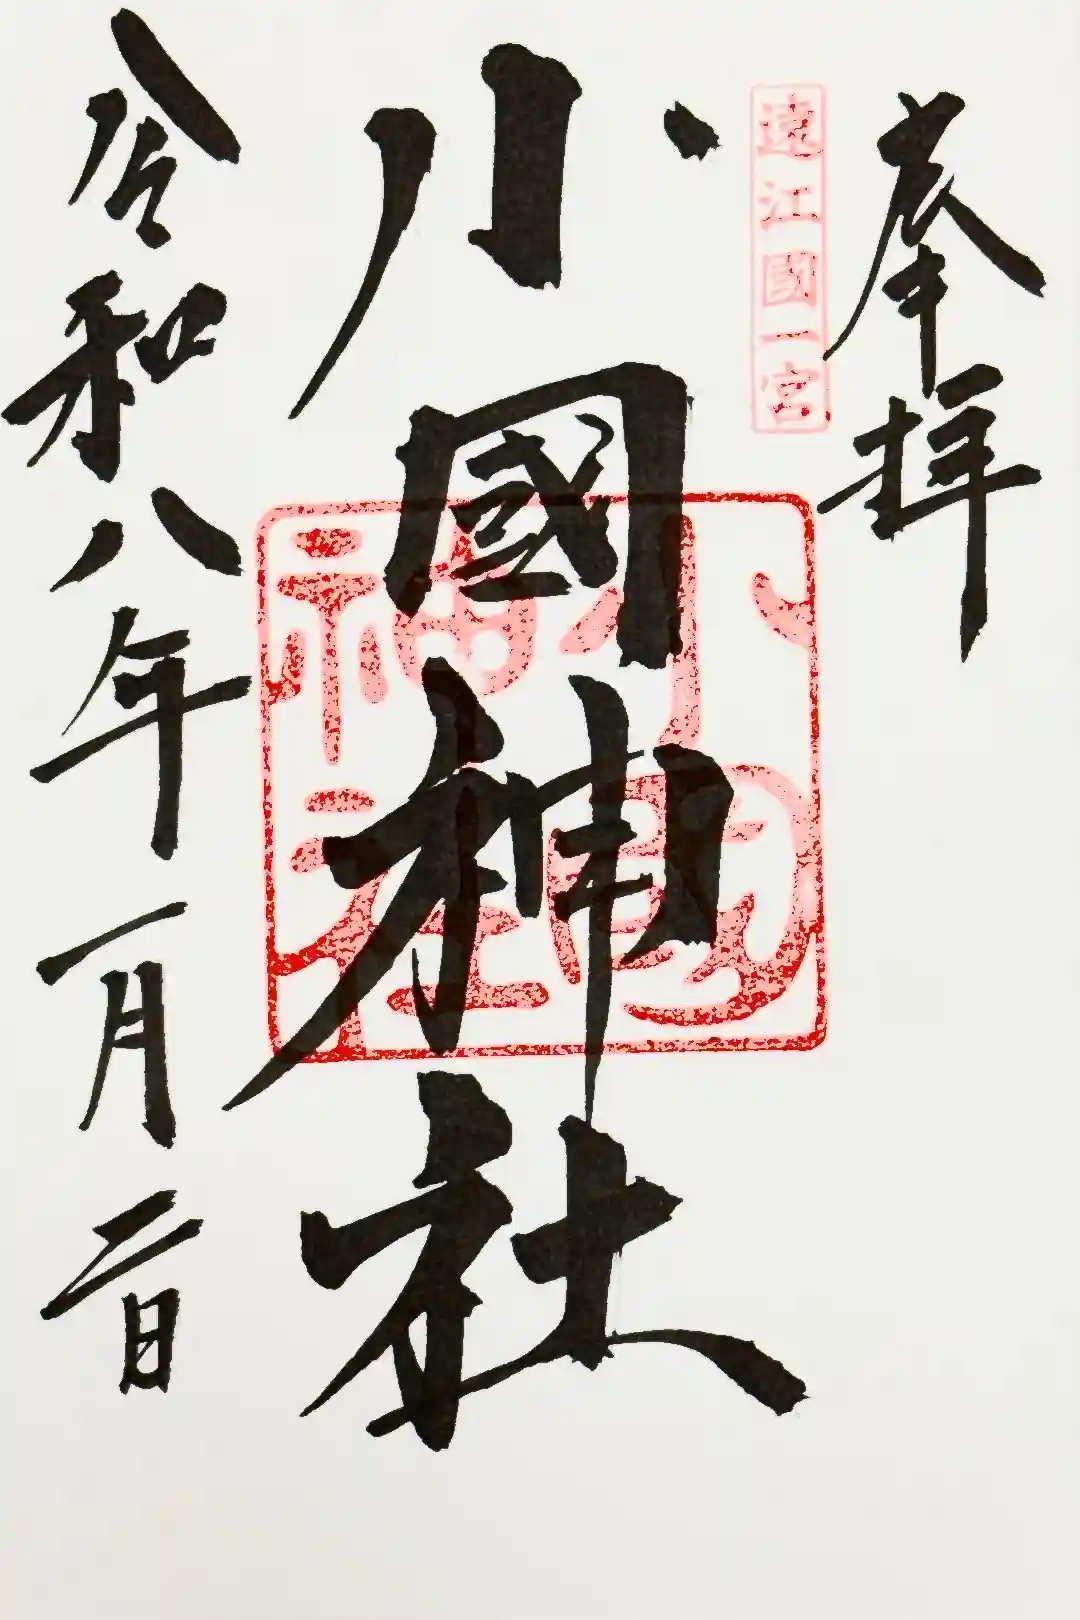 奉拝
遠江國一宮
小國神社
小國神社
令和八年一月二日